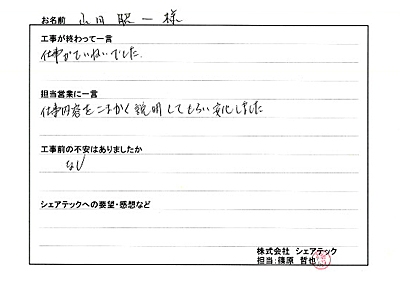 お名前 山田 昭一 様
工事が終わって一言
仕事がていねいでした.
担当営業に一言
仕事内容をこまかく説明してもらい安心しました
工事前の不安はありましたか
なし
シェアテックへの要望・感想など
株式会社 シェアテック
担当:篠原 哲也